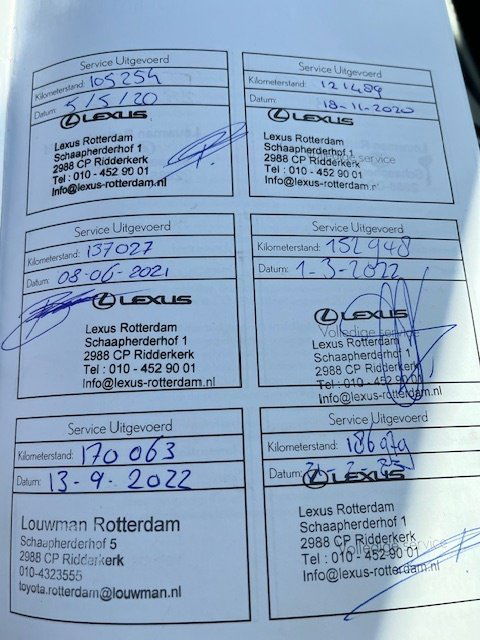 Service Uitgevoerd
Kilometerstand: 105254
Datum: 5/5/20
LEXUS
Lexus Rotterdam
Schaapherderhof 1
2988 CP Ridderkerk
Tel : 010 - 452 90 01
Info@lexus-rotterdam.nl
Service Uitgevoerd
Kilometerstand: 121489
Datum: 18-11-2020
LEXUS
Lexus Rotterdam
Schaapherderhof 1
2988 CP Ridderkerk
Tel : 010 - 452 90 01
Info@lexus-rotterdam.nl
Service Uitgevoerd
Kilometerstand: 137027
Datum: 08-06-2021
LEXUS
Lexus Rotterdam
Schaapherderhof 1
2988 CP Ridderkerk
Tel : 010 - 452 90 01
Info@lexus-rotterdam.nl
Service Uitgevoerd
Kilometerstand: 152948
Datum: 1-3-2022
LEXUS
Volledige service
Lexus Rotterdam
Schaapherderhof 1
2988 CP Ridderkerk
Tel : 010 - 452 90 01
Info@lexus-rotterdam.nl
Service Uitgevoerd
Kilometerstand: 170063
Datum: 13-9-2022
Louwman Rotterdam
Schaapherderhof 5
2988 CP Ridderkerk
010-4323555
toyota.rotterdam@louwman.nl
Service Uitgevoerd
Kilometerstand: 186079
Datum:
LEXUS
Lexus Rotterdam
Schaapherderhof 1
2988 CP Ridderkerk
Volledige service
Tel : 010 - 452 90 01
Info@lexus-rotterdam.nl